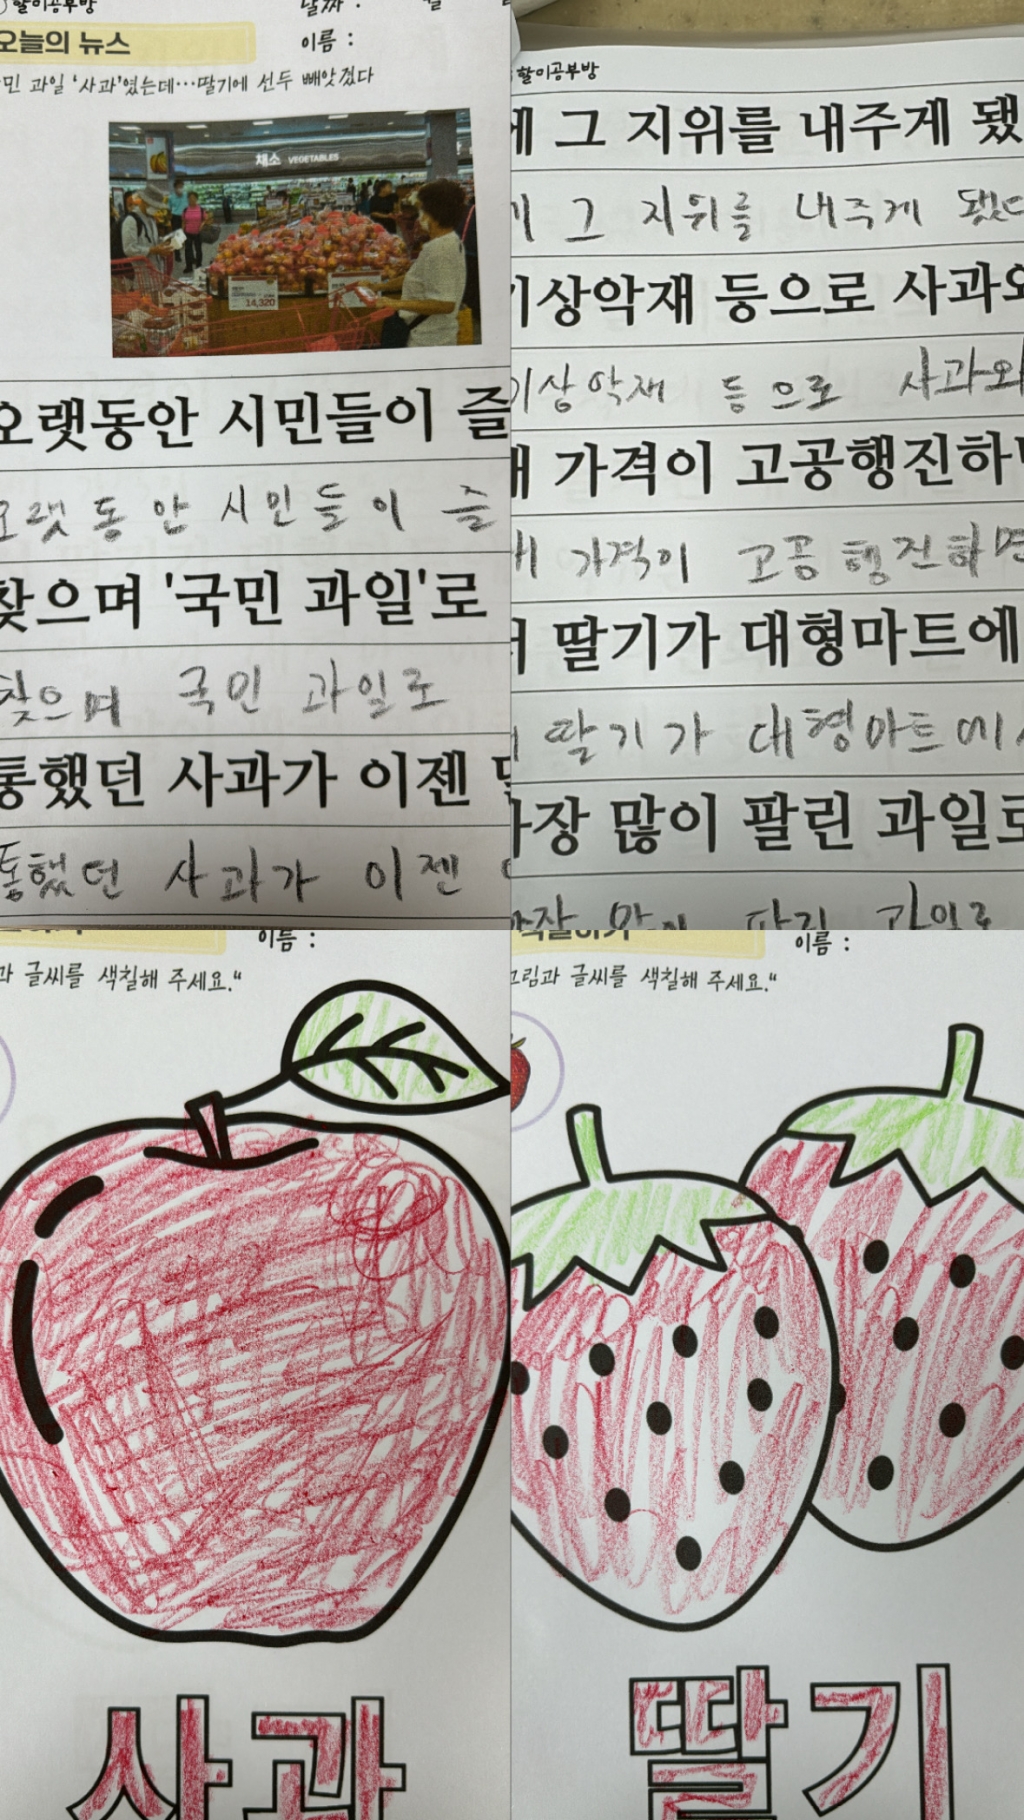 할미공부방
날짜 : 월
오늘의 뉴스
이름 :
민 과일 '사과'였는데…딸기에 선두 빼앗겼다
채소 VEGETABLES
14,320
오랫동안 시민들이 즐
오랫동안 시민들이 즐
찾으며 '국민 과일'로
찾으며 국민 과일로
통했던 사과가 이젠
통했던 사과가 이젠
할미공부방
그 지위를 내주게 됐
그 지위를 내주게 됐다
이상악재 등으로 사과와
이상악재 등으로 사과와
가격이 고공행진하
가격이 고공행진하면
딸기가 대형마트에
딸기가 대형마트에서
가장 많이 팔린 과일로
과일로
이름 :
과 글씨를 색칠해 주세요."
사과
이름 :
그림과 글씨를 색칠해 주세요."
딸기